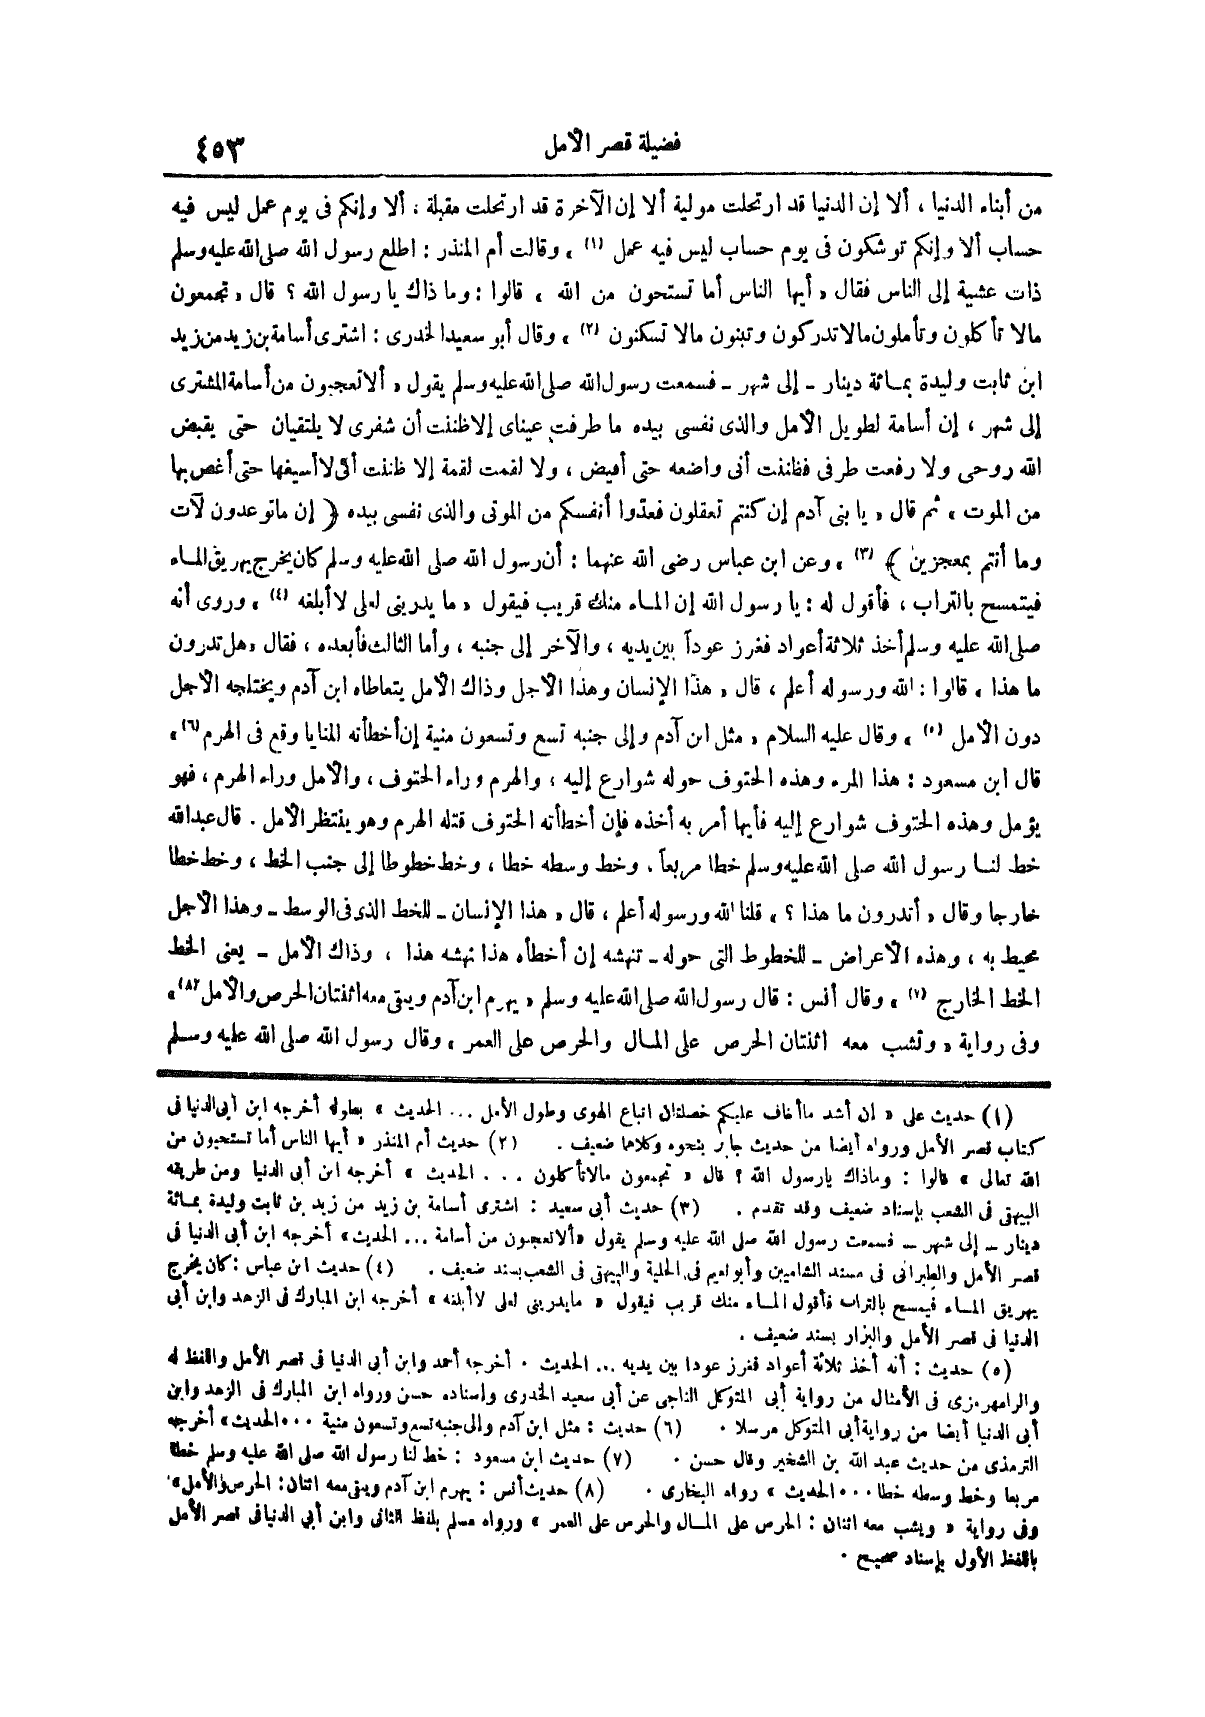 فضيلة قصر الأمل ٤٥٣
من أبناء الدنيا ، ألا إن الدنيا قد ارتحلت مولية ألا إن الآخرة قد ارتحلت مقبلة ، ألا وإنكم فى يوم عمل ليس فيه
حساب ألا وإنكم توشكون فى يوم حساب ليس فيه عمل (١) » وقالت أم المنذر : اطلع رسول الله صلى الله عليه وسلم
ذات عشية إلى الناس فقال « أيها الناس أما تستحون من الله » قالوا : وما ذاك يا رسول الله ؟ قال « تجمعون
مالا تأكلون وتأملون مالا تدركون وتبنون مالا تسكنون (٢) » وقال أبو سعيد الخدرى : اشترى أسامة بن زيد من زيد
ابن ثابت وليدة بمائة دينار ـ إلى شهر ـ فسمعت رسول الله صلى الله عليه وسلم يقول « ألا تعجبون من أسامة المشترى
إلى شهر ، إن أسامة لطويل الأمل والذى نفسى بيده ما طرفت عيناى إلا ظننت أن شفرى لا يلتقيان حتى يقبض
الله روحى ولا رفعت طرفى فظننت أنى واضعه حتى أقبض ، ولا لقمت لقمة إلا ظننت أنى لا أسيغها حتى أغص بها
من الموت » ثم قال « يا بنى آدم إن كنتم تعقلون فعدّوا أنفسكم من الموتى والذى نفسى بيده ﴿ إن ماتوعدون لآت
وما أنتم بمعجزين ﴾ (٣) » وعن ابن عباس رضى الله عنهما : أن رسول الله صلى الله عليه وسلم كان يخرج يهريق الماء
فيتمسح بالتراب ، فأقول له : يا رسول الله إن الماء منك قريب فيقول « ما يدرينى لعلى لا أبلغه (٤) » وروى أنه
صلى الله عليه وسلم أخذ ثلاثة أعواد فغرز عوداً بين يديه ، والآخر إلى جنبه ، وأما الثالث فأبعده ، فقال « هل تدرون
ما هذا » قالوا : الله ورسوله أعلم ، قال « هذا الإنسان وهذا الأجل وذاك الأمل يتعاطاه ابن آدم ويختلجه الأجل
دون الأمل (٥) » وقال عليه السلام « مثل ابن آدم وإلى جنبه تسع وتسعون منية إن أخطأته المنايا وقع فى الهرم (٦) »
قال ابن مسعود : هذا المرء وهذه الحتوف حوله شوارع إليه ، والهرم وراء الحتوف ، والأمل وراء الهرم ، فهو
يؤمل وهذه الحتوف شوارع إليه فأيها أمر به أخذه فإن أخطأته الحتوف قتله الهرم وهو ينتظر الأمل . قال عبد الله
خط لنا رسول الله صلى الله عليه وسلم خطا مربعاً . وخط وسطه خطا ، وخط خطوطا إلى جنب الخط ، وخط خطا
خارجا وقال « أتدرون ما هذا ؟ » قلنا الله ورسوله أعلم ، قال « هذا الإنسان ـ للخط الذى فى الوسط ـ وهذا الأجل
محيط به ، وهذه الأعراض ـ للخطوط التى حوله ـ تنهشه إن أخطأه هذا نهشه هذا ، وذاك الأمل ـ يعنى الخط
الخط الخارج (٧) » وقال أنس : قال رسول الله صلى الله عليه وسلم « يهرم ابن آدم ويبقى معه اثنتان الحرص والأمل (٨) »
وفى رواية « وتشب معه اثنتان الحرص على المال والحرص على العمر » وقال رسول الله صلى الله عليه وسلم
(١) حديث على « إن أشد ما أخاف عليكم خصلتان اتباع الهوى وطول الأمل ... الحديث » بطوله أخرجه ابن أبى الدنيا فى
كتاب قصر الأمل ورواه أيضا من حديث جابر بنحوه وكلاهما ضعيف . (٢) حديث أم المنذر « أيها الناس أما تستحيون من
الله تعالى » قالوا : وماذاك يارسول الله ؟ قال « تجمعون مالاتأكلون . . . الحديث » أخرجه ابن أبى الدنيا ومن طريقه
البيهقى فى الشعب بإسناد ضعيف وقد تقدم . (٣) حديث أبى سعيد : اشترى أسامة بن زيد من زيد بن ثابت وليدة بمائة
دينار ـ إلى شهر ـ فسمعت رسول الله صلى الله عليه وسلم يقول «ألاتعجبون من أسامة ... الحديث» أخرجه ابن أبى الدنيا فى
قصر الأمل والطبرانى فى مسند الشاميين وأبو نعيم فى الحلية والبيهقى فى الشعب بسند ضعيف . (٤) حديث ابن عباس : كان يخرج
يهريق الماء فيمسح بالتراب فأقول الماء منك قريب فيقول « مايدرينى لعلى لاأبلغه » أخرجه ابن المبارك فى الزهد وابن أبى
الدنيا فى قصر الأمل والبزار بسند ضعيف .
(٥) حديث : أنه أخذ ثلاثة أعواد فغرز عودا بين يديه ... الحديث . أخرجه أحمد وابن أبى الدنيا فى قصر الأمل واللفظ له
والرامهرمزى فى الأمثال من رواية أبى المتوكل الناجى عن أبى سعيد الخدرى وإسناده حسن ورواه ابن المبارك فى الزهد وابن
أبى الدنيا أيضا من رواية أبى المتوكل مرسلا . (٦) حديث : مثل ابن آدم وإلى جنبه تسع وتسعون منية ... الحديث» أخرجه
الترمذى من حديث عبد الله بن الشخير وقال حسن . (٧) حديث ابن مسعود : خط لنا رسول الله صلى الله عليه وسلم خطا
مربعا وخط وسطه خطا ... الحديث » رواه البخارى . (٨) حديث أنس : يهرم ابن آدم ويبقى معه اثنان: الحرص والأمل»
وفى رواية « ويشب معه اثنان : الحرص على المال والحرص على العمر » ورواه مسلم بلفظ الثانى وابن أبى الدنيا فى قصر الأمل
باللفظ الأول بإسناد صحيح .